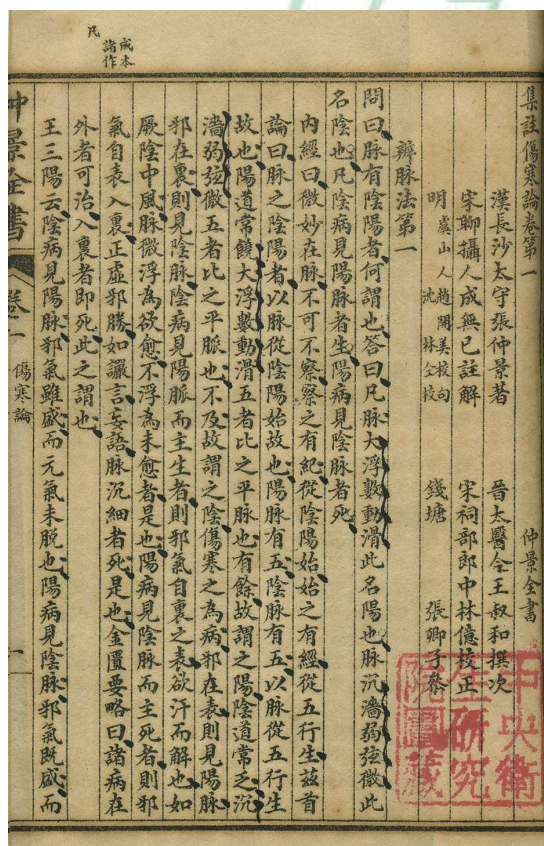 成本
諸作
凡
集註傷寒論卷第一
仲景全書
漢長沙太守張仲景著
晉太醫令王叔和撰次
宋聊攝人成無已註解
宋祠部郎中林億校正
明
虞山人趙開美校句
沈琳仝校
錢塘
張卿子參
辨脉法第一
問曰脉有陰陽者何謂也答曰凡脉大浮數動滑此名陽也脉沉濇弱弦微此
名陰也凡陰病見陽脉者生陽病見陰脉者死
內經曰微妙在脉不可不察察之有紀從陰陽始始之有經從五行生茲首
論曰脉之陰陽者以脉從陰陽始故也陽脉有五陰脉有五以脉從五行生
故也陽道常饒大浮數動滑五者比之平脉也有餘故謂之陽陰道常乏沉
濇弱弦微五者比之平脉也不及故謂之陰傷寒之為病邪在表則見陽脉
邪在裏則見陰脉陰病見陽脈而主生者則邪氣自裏之表欲汗而解也如
厥陰中風脉微浮為欲愈不浮為未愈者是也陽病見陰脉而主死者則邪
氣自表入裏正虛邪勝如讝言妄語脉沉細者死是也金匱要略曰諸病在
外者可治入裏者即死此之謂也
王三陽云陰病見陽脉邪氣雖盛而元氣未脱也陽病見陰脉邪氣既盛而
仲景全書
卷一
傷寒論
一
中央衛
生研究
院圖藏